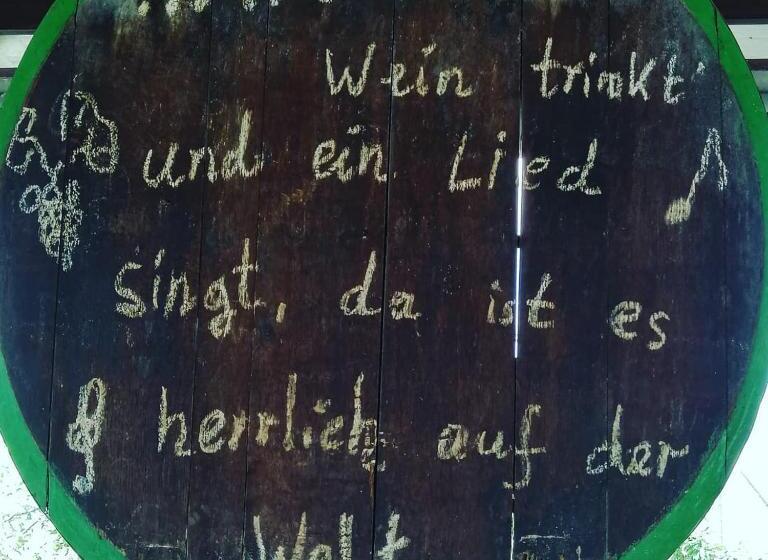 Wein trinkt
und ein Lied
singt, da ist es
herrlich auf der
Welt